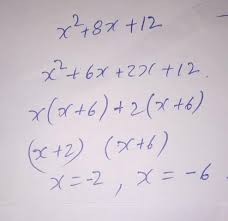 x²+8x+12
x²+6x+2x+12.
x(x+6)+2(x+6)
(x+2) (x+6)
x=-2, x=-6